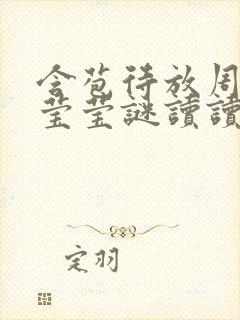 含苞待放周
莹莹謎讀讀
定羽